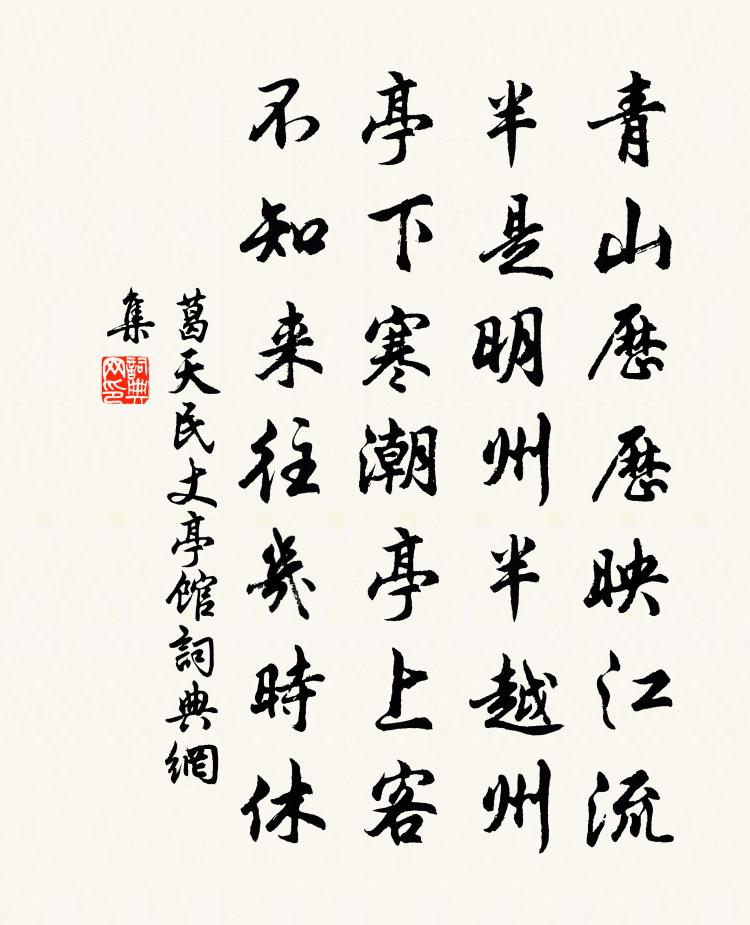 青山歷歷映江流
半是明州半越州
亭下寒潮亭上客
不知来往幾時休
葛天民丈亭館詞典網
集
詞典
网印